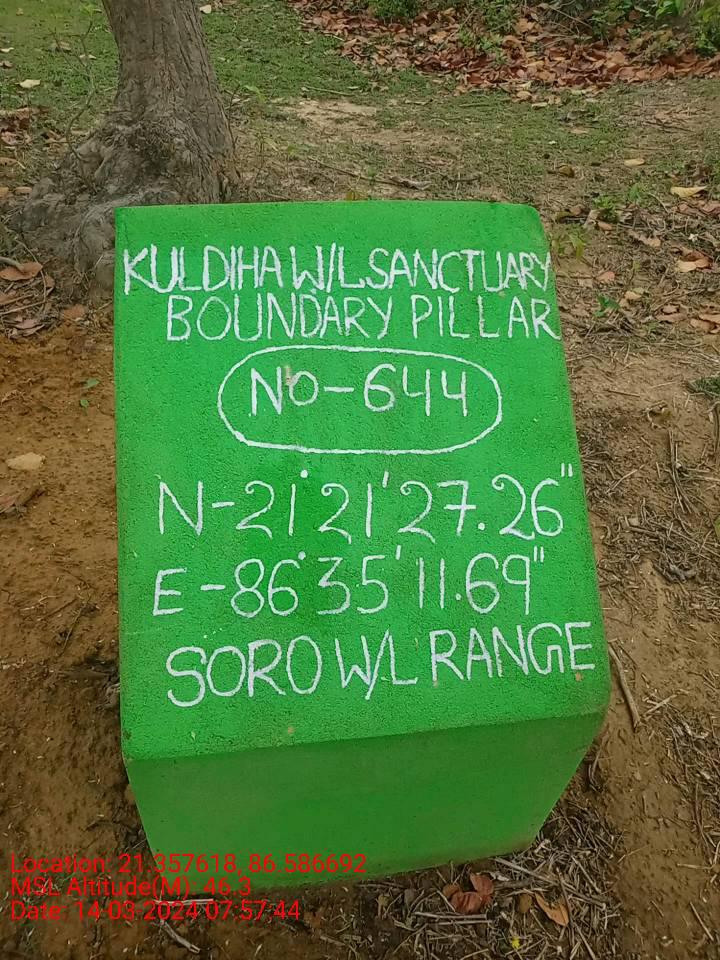 KULDIHA W/L SANCTUARY
BOUNDARY PILLAR
NO-644
N-21°21'27.26"
E-86°35'11.69"
SORO W/L RANGE
Location: 21.357618, 86.586692
MSL Altitude(M): 46.3
Date: 14-03-2024 07:57:44